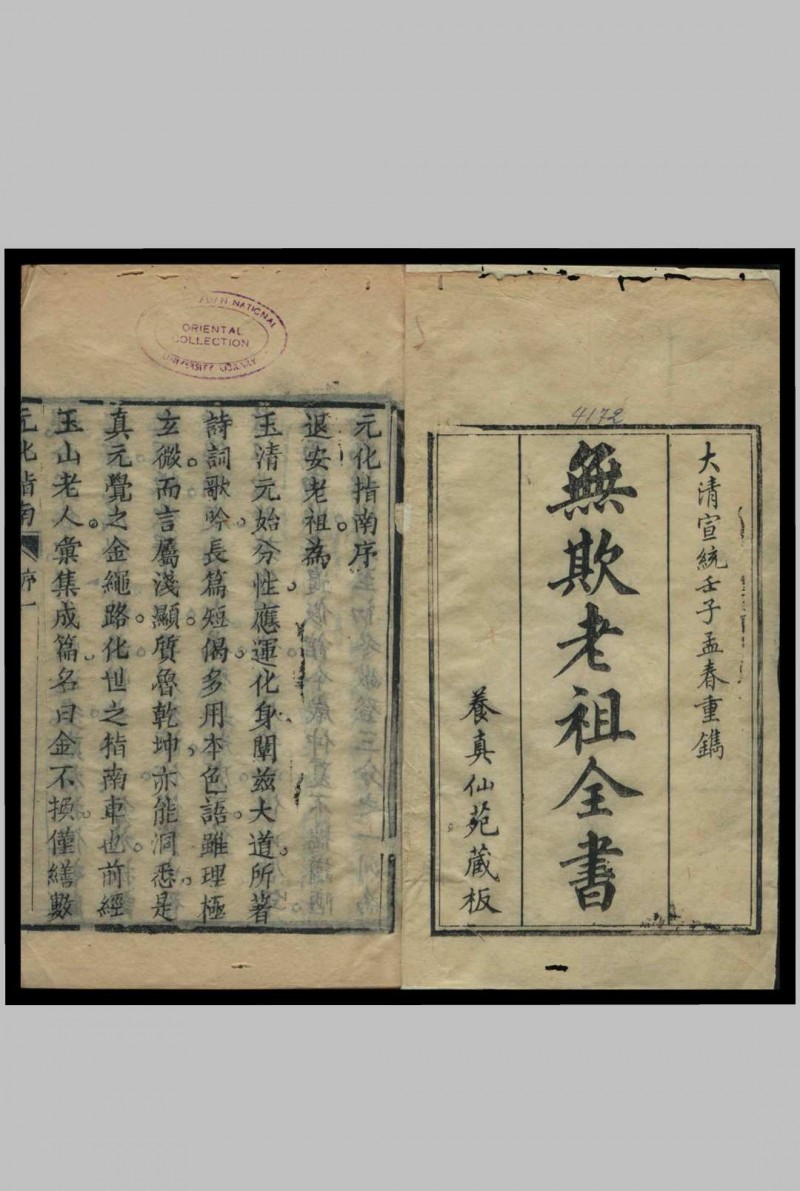 4172
大清宣統壬子孟春重鐫
無欺老祖全書
養真仙苑藏板
NATIONAL
ORIENTAL
COLLECTION
UNIVERSITY LIBRARY
元化指南序
退安老祖。為
玉清元始分性應運化身闡茲大道所著
詩詞歌吟。長篇短偈。多用本色語。雖理極
玄微。而言屬淺顯。質魯乾坤。亦能洞悉。是
真元覺之金繩路。化世之指南車也。前經
玉山老人。彙集成篇。名曰金不換。僅繕數
元化指南 序 一